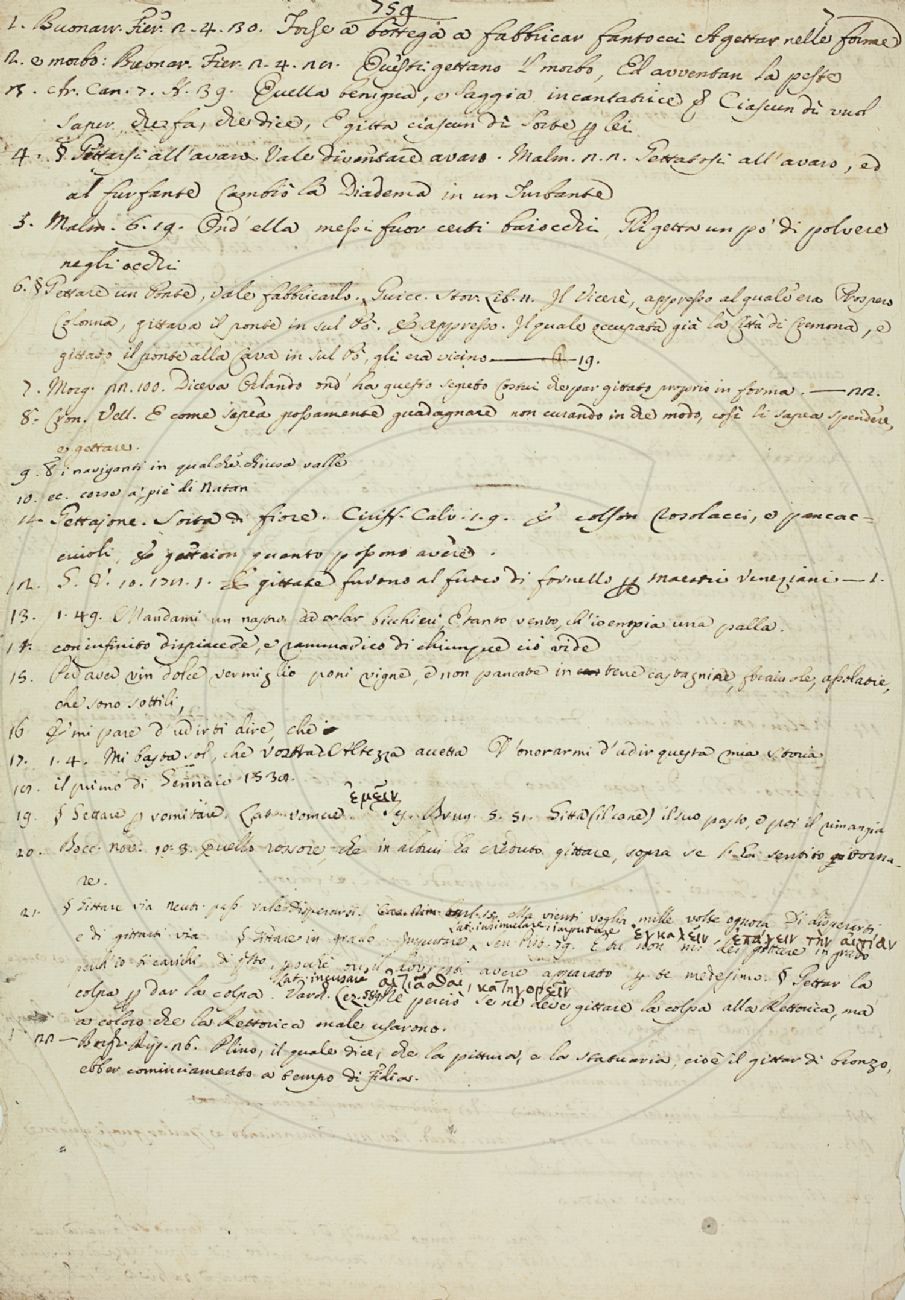 759
1. Buonarr. Fier. 2. 4. 30. Forse a bottega a fabbricar fantocci A gettar nelle forme
2. e morbo: Buonar. Fier. 2. 4. Questi gettano 'l morbo, Ed avventan la peste
3. Ar. Can. 7. St. 39. Quella benigna, e saggia incantatrice Ciascun dì vuol
saper che fa, che dice, E gitta ciascun dì sorte per lei
4. § Gittarsi all'avaro. Vale diventare avaro. Malm. Gettatosi all'avaro, ed
al furfante Cambiò la Diadema in un Turbante
5. Malm. 6. 19. Ond' ella messi fuor certi baiocchi, Gli getta un pò di polvere
negli occhi
6. § Gettare un Ponte, vale fabbricarlo. Guicc. Stor. Lib. Il Vicerè, appresso al quale era Prospero
Colonna, gittava il ponte in sul Pò. & appresso. Il quale occupata già la Città di Cremona, e
gittato il ponte alla Cava in sul Pò, gli era vicino 19.
7. Morg. 22. 100. Diceva Orlando ond' ha questo segreto Costui che par gittato proprio in forma. — 22.
8. Cron. Vell. E come sapea possamente guadagnare non curando in che modo, così li sapea spendere,
e gettare.
9. & i naviganti in qualche chiusa valle
10. ec. corse a piè di Natan
11. Gettajone. Sorta di fiore. Ciriff. Calv. 1. 9. & colson rosolacci, e pancac=
ciuoli, & gettaion quanto possono avere.
12. 10. 1. & gittate furono al fuoco di fornello per maestri Veneziani. — 1.
13. 1. 49. Mandami un nastro ad orlar bicchieri, E tanto vento, ch' io empia una palla.
14. con infinito dispiacere, e rammarico di chiunque ciò vide
15. Per aver vin dolce vermiglio poni vigne, e non pancate in terre castagnine, assolatie,
che sono sottili,
16 E' mi pare d' udirti dire, che
17. 1. 4. Mi basta sol, che Vostra Altezza accetta D' onorarmi d' udir questa mia storia
il primo di Gennaio
19. § Gettare per vomitare. Lat. vomere. ἐμεῖν. Gitta (il cane) il suo pasto, e poi il rimangia
20. Bocc. Nov. 10. 8. Quello rossore che in altrui ha creduto gittare, sopra se l' ha sentito ritorna-
re.
21. § Gittare via neutr. pass. vale disperarsi. ella vienti voglia mille volte ognora Di disperarti,
Lat. insimulare, imputare ἐγκαλεῖν ἐπάγειν τὴν αἰτίαν
e di gittarti via § Gittare in grado E tu non mi dei gittare in grado
avere amato te medesimo. § Gettar la
Lat. incusare αἰτιᾶσθαι, κατηγορεῖν
colpa per dar la colpa. Nè perciò se ne deve gittare la colpa alla Rettorica, ma
a coloro che la Rettorica male usarono.
22 — Borgh. Rip. 26. Plinio, il quale dice, che la pittura, e la statuaria, cioè il gittar di bronzo,
ebber cominciamento a tempo di Fidia.